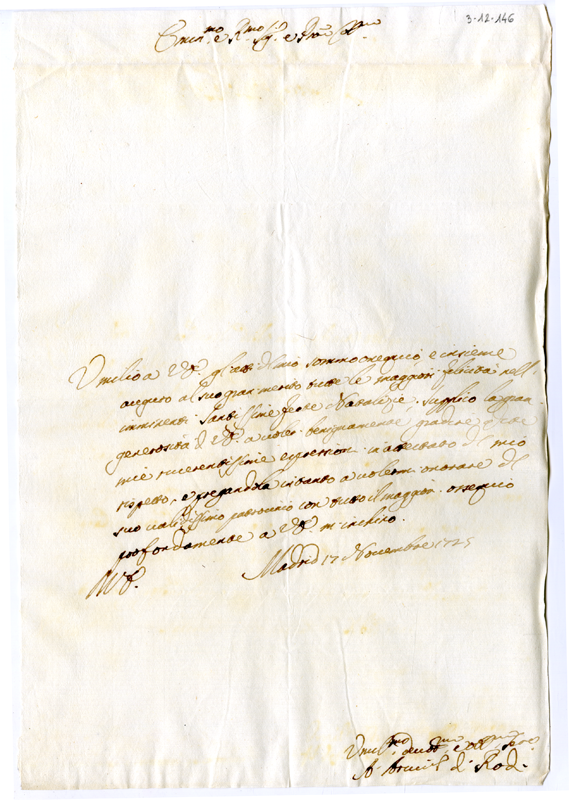 3-12-146
Emin.mo e R.mo Sig.r e P̃rõn Coll.mo
Umilio a V. E. gl'atti del mio sommo ossequio e insieme
auguro al suo gran merito tutte le maggiori felicità nell'
imminenti Santissime feste Natalizie. Supplico la gran
generosità di V. E. a voler benignamente gradire
mie riverentissime espressioni in attestato del mio
rispetto, e pregandola intanto a volermi onorare del
suo validissimo patrocinio con tutto il maggior ossequio
profondamente a V. E. m'inchino.
Madrid 17 Novembre 1725
Umil.mo devot.mo e obb.mo
d. Rod.